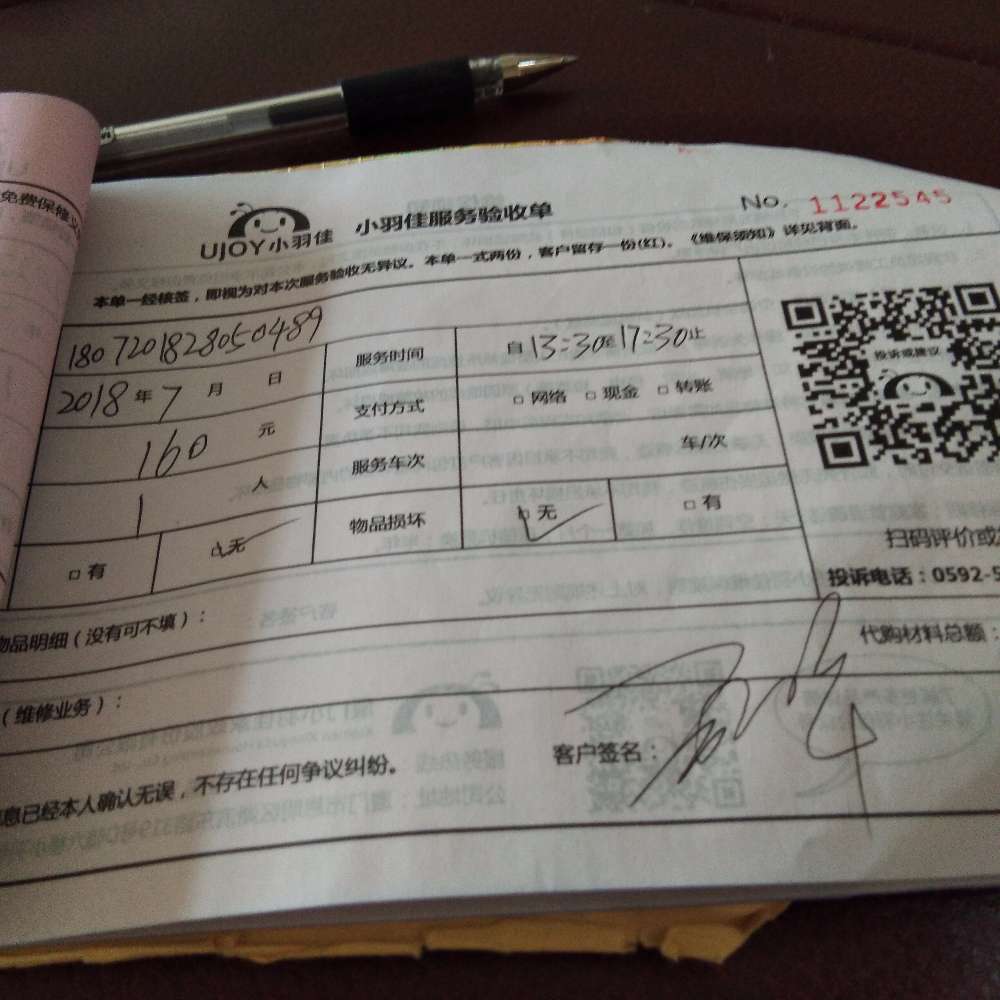 免费保修
UJOY小羽佳 小羽佳服务验收单 No. 1122545
本单一经核签，即视为对本次服务验收无异议。本单一式两份，客户留存一份(红)。《维保须知》详见背面。
1807201828050489 服务时间 自13:30至17:30止
2018年7月 日 支付方式 □网络 □现金 □转账
160元 服务车次 车/次
1人 物品损坏 □无 □有
□有 □无
投诉或建议
扫码评价或
投诉电话：0592-5
物品明细（没有可不填）： 代购材料总额：
（维修业务）：
客户签名：
息已经本人确认无误，不存在任何争议纠纷。